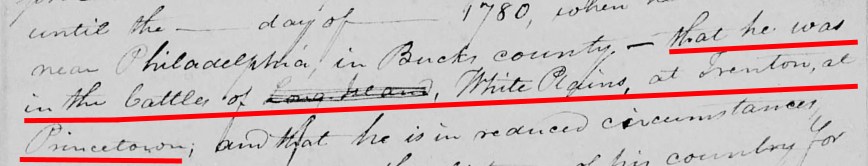 until the — day of — 1780, when he
near Philadelphia, in Bucks county — that he was
in the battles of Long Island, White Plains, at Trenton, at
Princetown; and that he is in reduced circumstances,
of his country for